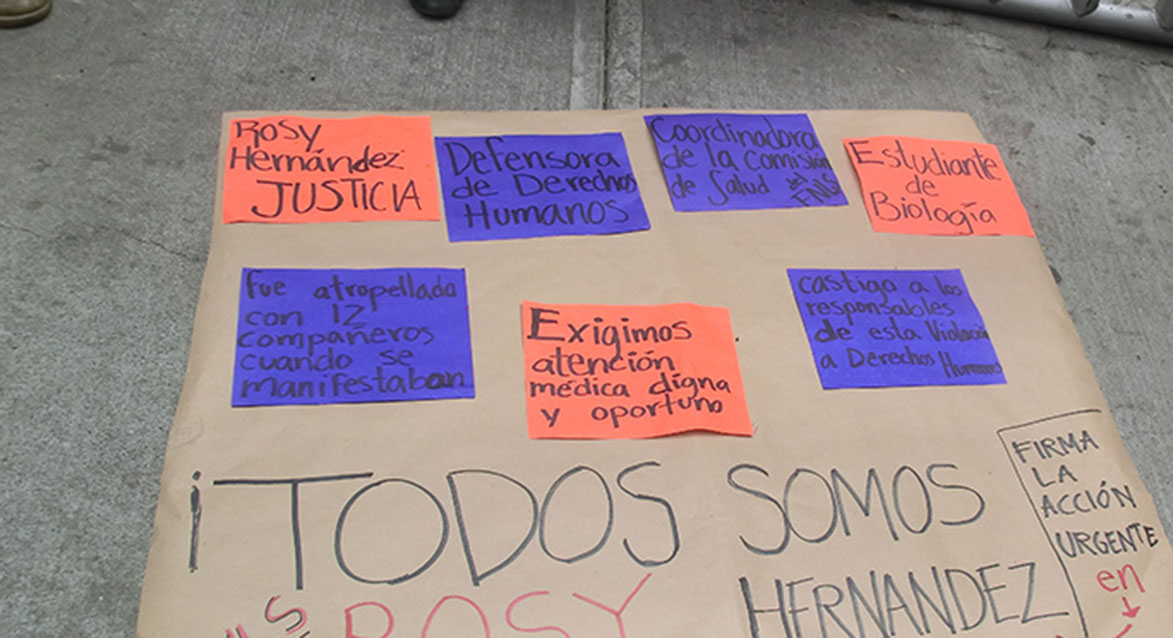 Rosy
Hernández
JUSTICIA
Defensora
de Derechos
Humanos
Coordinadora
de la comisión
de Salud del
FNG
Estudiante
de
Biología
fue atropellada
con 12
compañeros
cuando se
manifestaban
Exigimos
atención
médica digna
y oportuna
castigo a los
responsables
de esta Violación
a Derechos Humanos
¡TODOS SOMOS
ROSY HERNANDEZ
FIRMA
LA
ACCIÓN
URGENTE
en